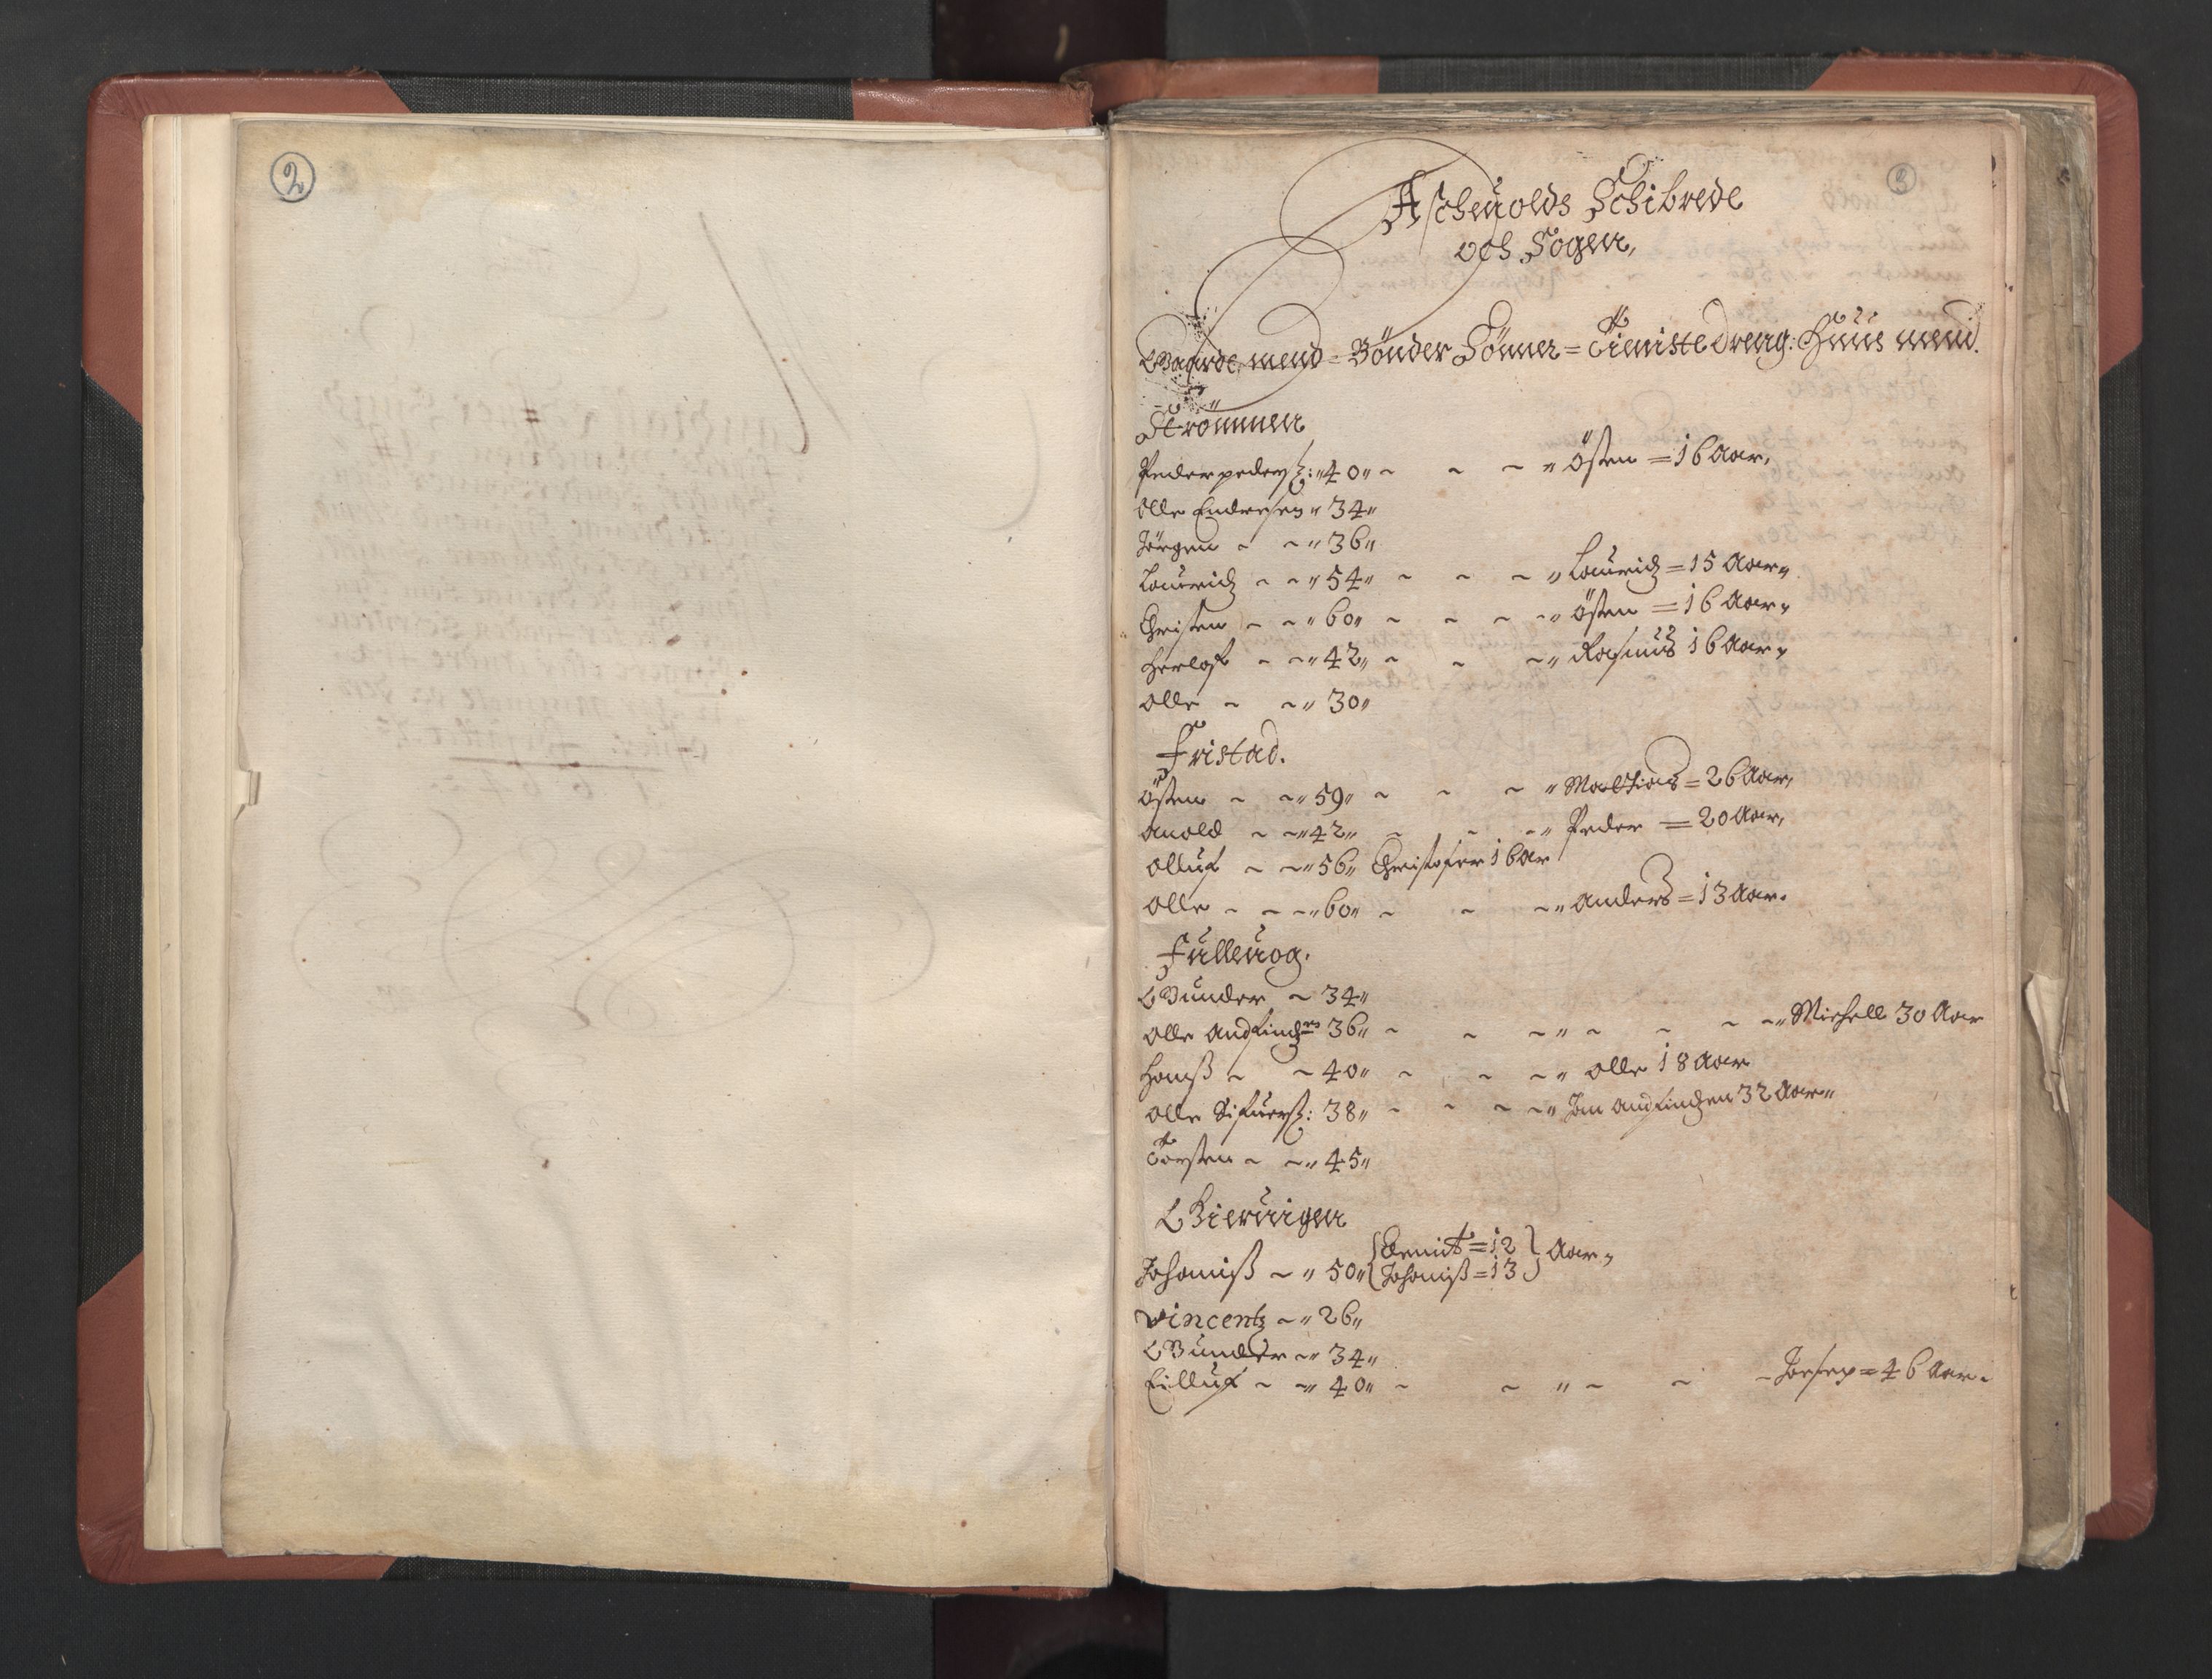 2
3
Ascheuolds Schibrede
och Sogen,
Gaarde mend = Bönder Sönner = Tieniste dreng: Huus mend.
Strömmen
Peder peders: 40 Östen = 16 Aar,
Olle Endresen 34
Jörgen 36
Lauridz 54 Lauridz = 15 Aar
Christen 60 Östen = 16 Aar
Herlof 42 Rasmus 16 Aar
Olle 30
Fristad.
Östen 59 Mathias = 26 Aar,
Anold 42 Peder = 20 Aar,
Olluf 56 Christofer 16 Aar
Olle 60 Anders = 13 Aar.
Fulleuog.
Gunder 34
Olle Andfindz 36 Michell 30 Aar
Hanß 40 Olle 18 Aar
Olle Sifuers: 38 Jan Andfindzen 32 Aar
Torsten 45
Gieruigen
Johaniß 50 { Bernit = 12 } Aar,
{ Johaniß = 13 }
Vincentz 26
Gunder 34
Eilluf 40 Joesep = 46 Aar.